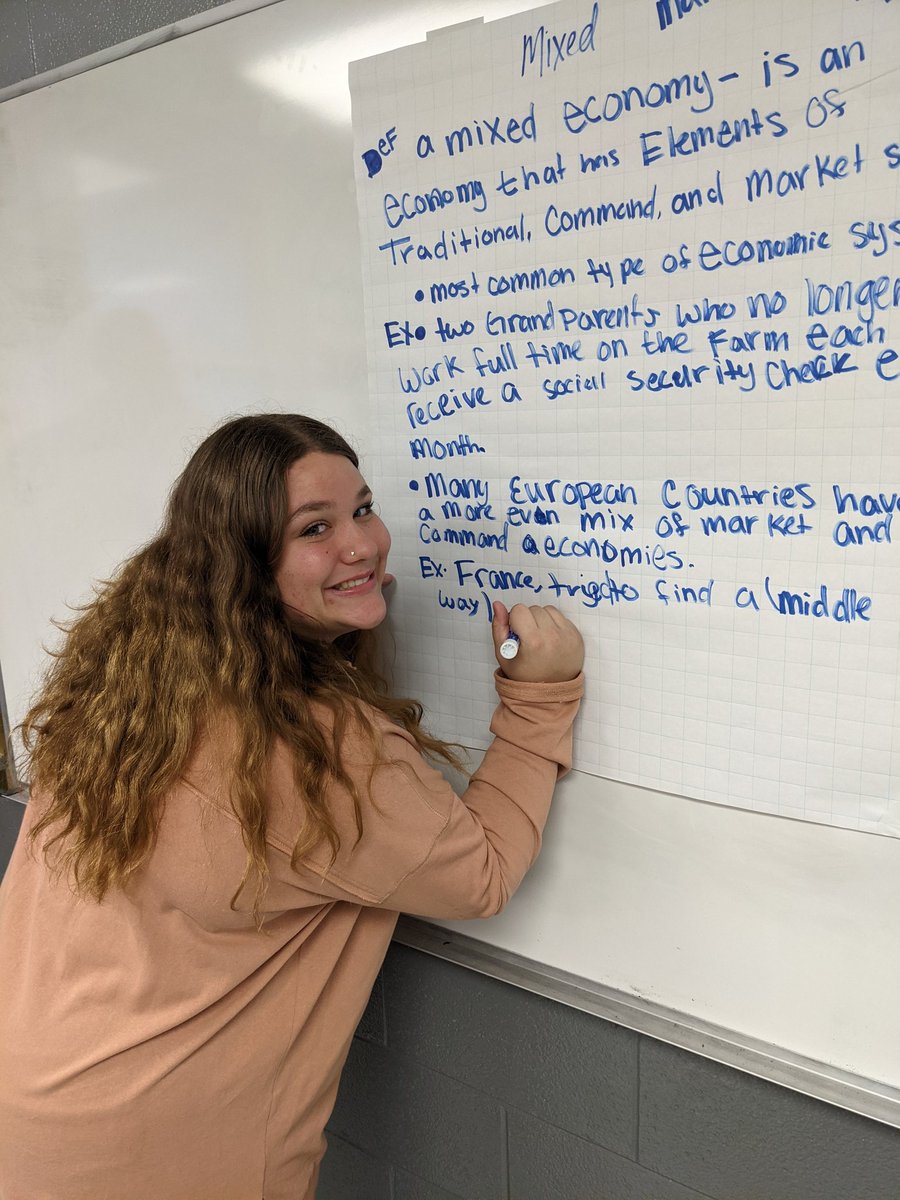 Mixed
Def a mixed economy- is an
economy that has Elements of
Traditional, Command, and market s
• most common type of economic sys
Ex• two Grandparents who no longer
work full time on the Farm each
receive a social security check e
month.
• Many European Countries hav
a more even mix of market and
Command economies.
Ex. France, tries to find a (middle
way)